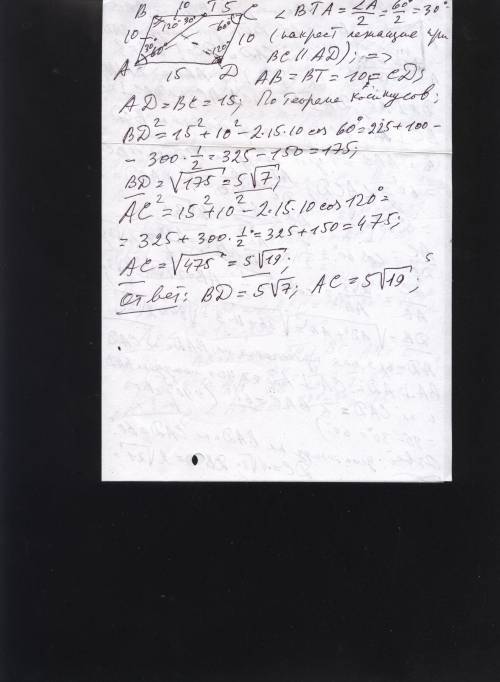 B 10 T 5 C
120° 30° 60°
10 10
30° 60° 120°
A 15 D
∠BTA = ∠A/2 = 60°/2 = 30°
(накрест лежащие при
BC || AD); =>
AB = BT = 10 = CD;
AD = BC = 15; По теореме косинусов;
BD² = 15² + 10² - 2·15·10 cos 60° = 225 + 100 -
- 300·1/2 = 325 - 150 = 175;
BD = √175 = 5√7;
AC² = 15² + 10² - 2·15·10 cos 120° =
= 325 + 300·1/2 = 325 + 150 = 475;
AC = √475 = 5√19;
Ответ: BD = 5√7; AC = 5√19;